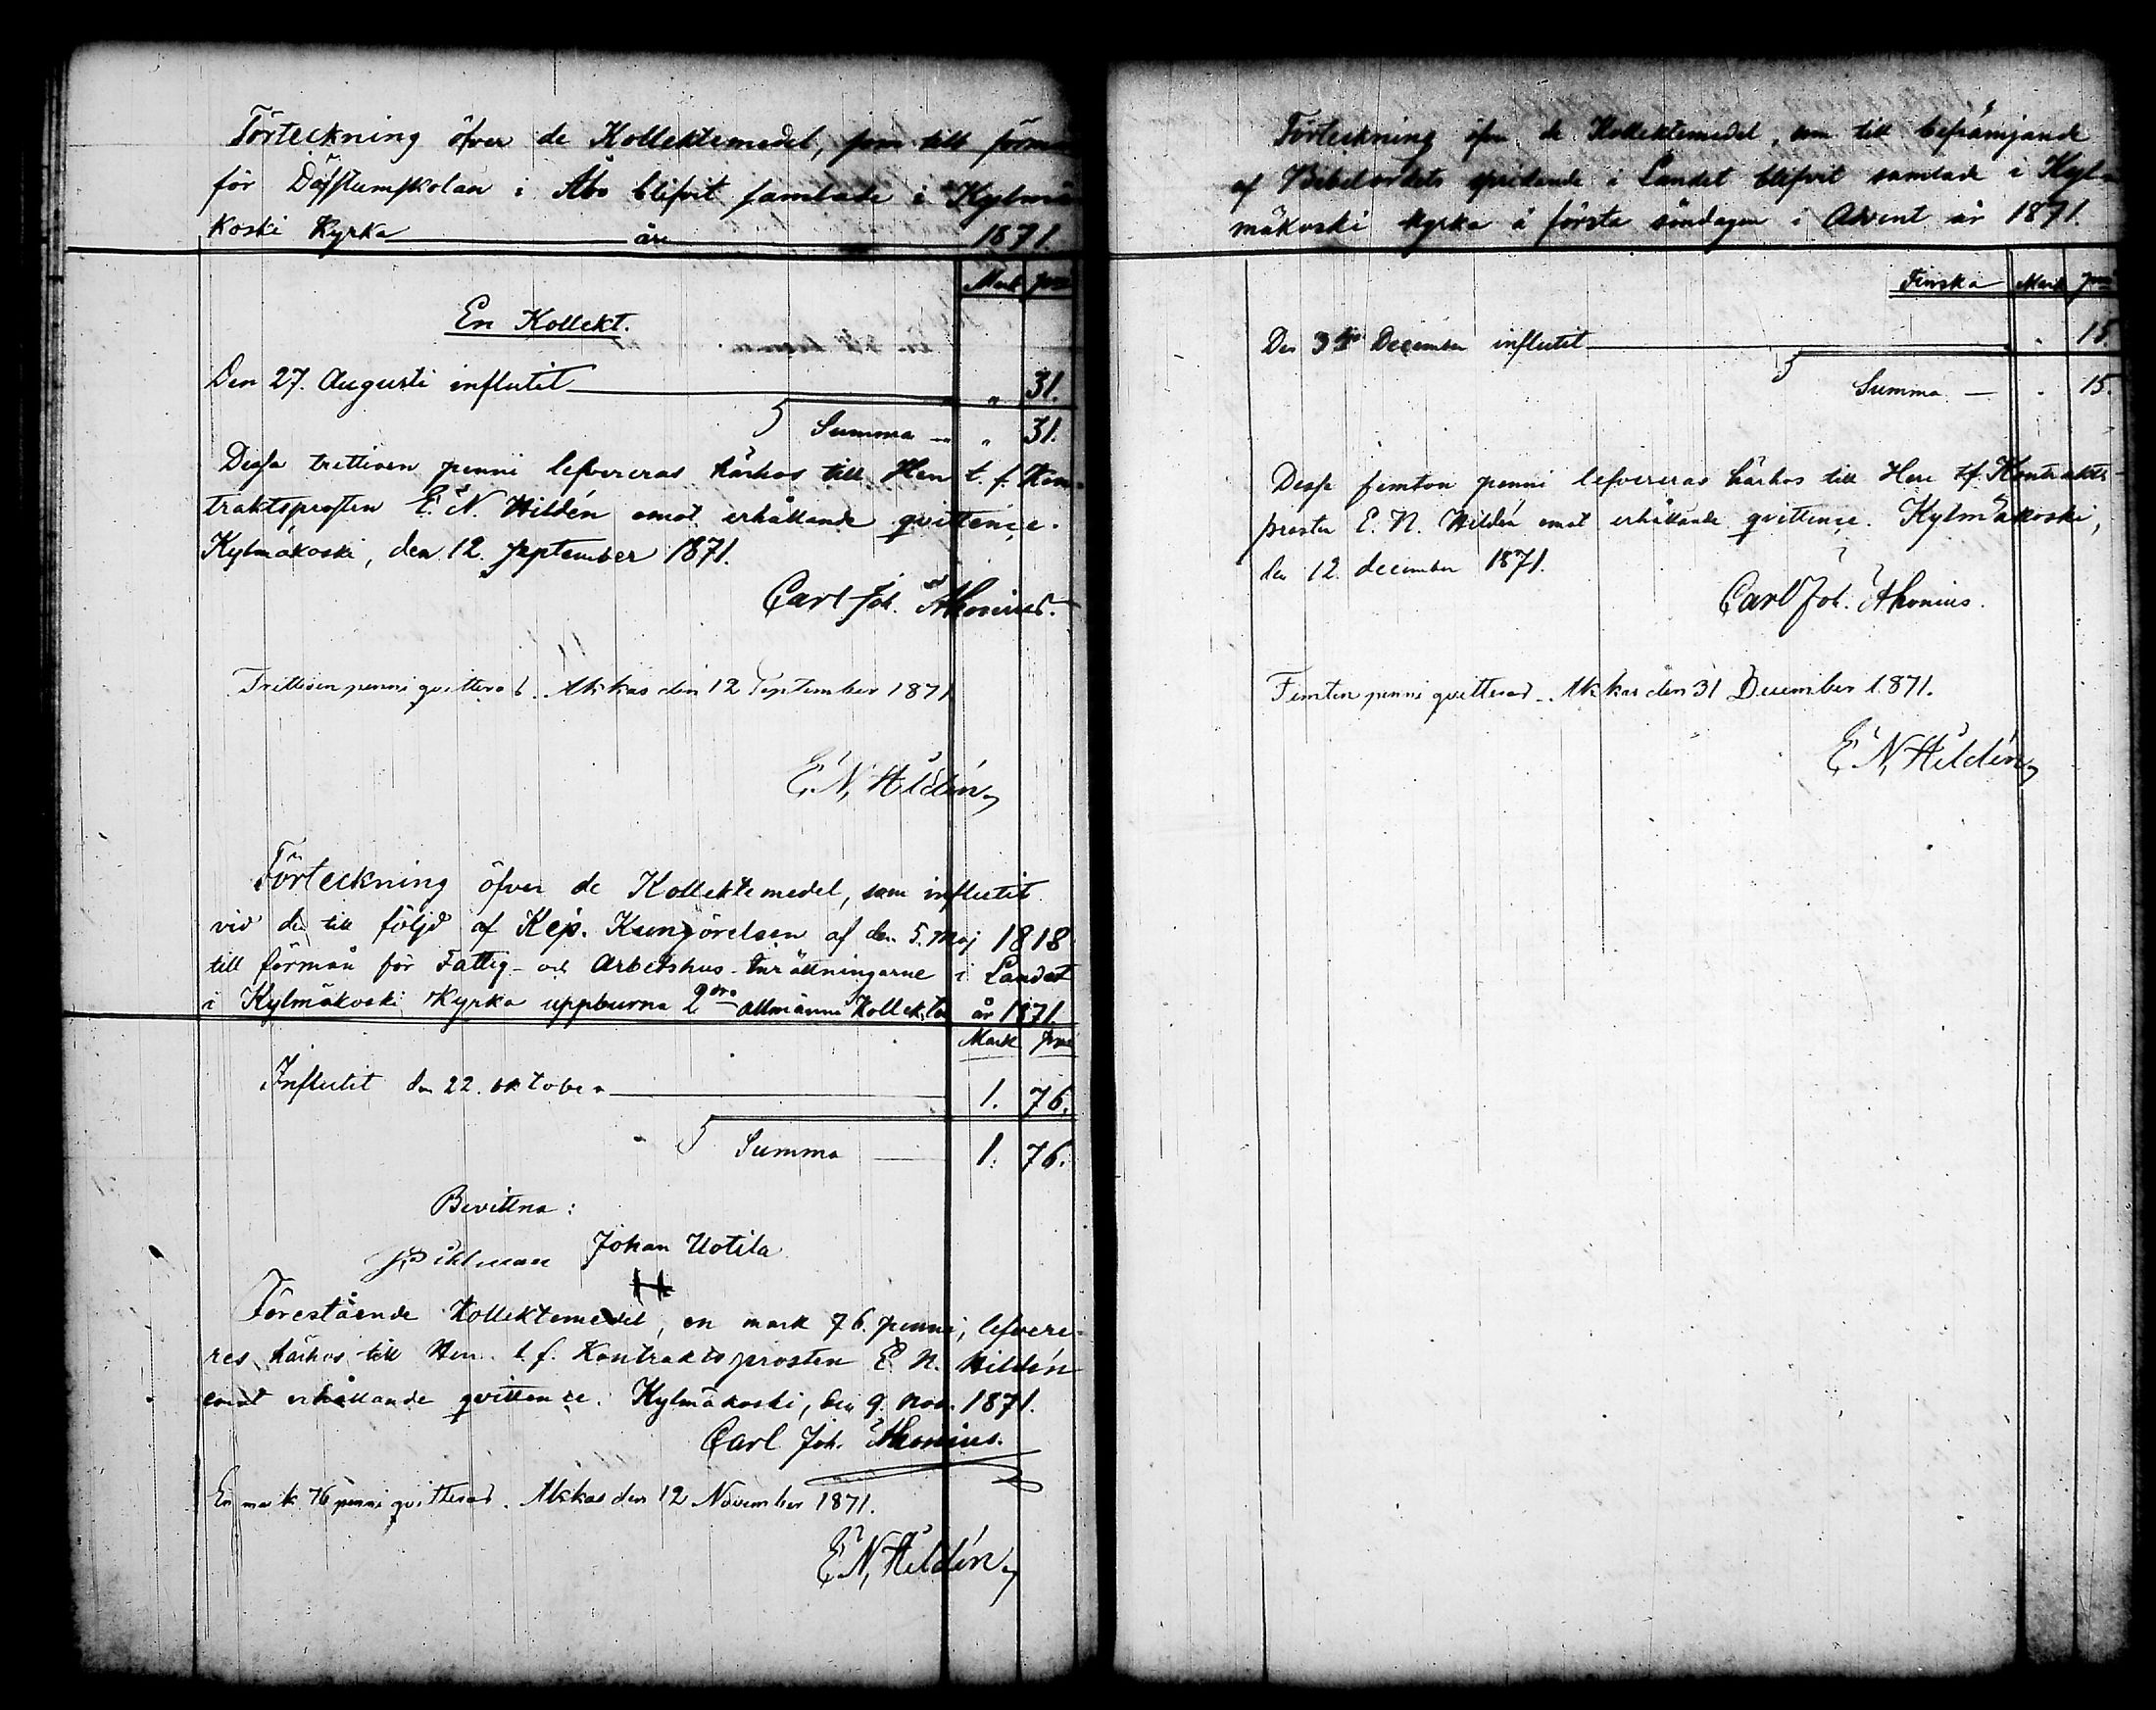 Förteckning öfver de Kollektemedel, som till förmån
för Döfstumskolan i Åbo blifvit samlade i Kylmä
koski Kyrka år 1871.
Mark pni
En Kollekt.
Den 27. Augusti influtit " 31.
Summa " 31.
Dessa trettioen penni lefvereras härhos till Herr t. f. Kon-
traktsprosten E. N. Hildén emot erhållande qvittence.
Kylmäkoski, den 12. September 1871.
Carl Joh. Ahonius.
Trettioen penni qvitteras. Akkas den 12 September 1871
E. N. Hildén
Förteckning öfver de Kollektemedel, som influtit
vid de till följd af Kejs. Kungörelsen af den 5. Maj 1818
till förmån för Fattig- och Arbetshus-Inrättningarne i Landet
i Kylmäkoski Kyrka uppburna 2dra allmänna Kollekten år 1871.
Mark pni
Influtit den 22. oktober 1. 76.
Summa 1. 76.
Bevittna:
Johan Uotila
Förestående Kollektemedel, en mark 76. penni, lefvere-
res härhos till Herr t. f. Kontraktsprosten E. N. Hildén
emot erhållande qvittence. Kylmäkoski, den 9. Nov. 1871.
Carl Joh. Ahonius.
En mark 76 penni qvitteras. Akkas den 12 November 1871.
E. N. Hildén
Förteckning öfver de Kollektemedel, som till befrämjande
af Bibelordets spridande i Landet blifvit samlade i Kyl-
mäkoski kyrka å första söndagen i Advent år 1871.
Finska Mark pni
Den 3dje December influtit . 15
Summa . 15.
Dessa femton penni lefvereras härhos till Herr tf. Kontrakts-
prosten E. N. Hildén emot erhållande qvittence. Kylmäkoski,
den 12. december 1871.
Carl Joh. Ahonius.
Femton penni qvitteras. Akkas den 31 December 1871.
E. N. Hildén